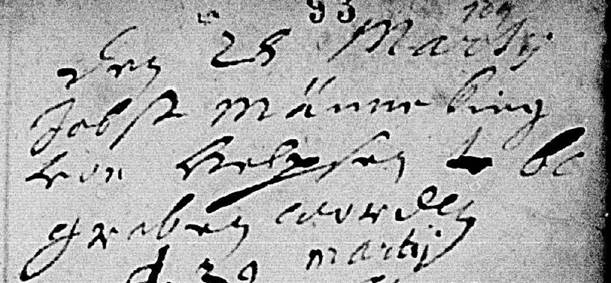 93
Den 28 Martij
Jobst Männeking
von Helpsen be
graben worden
d. 29 martij